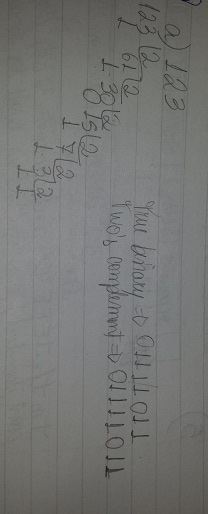 a) 123
123 | 2
1 61 | 2
1 30 | 2
0 15 | 2
1 7 | 2
1 3 | 2
1 1
True binary => 01111011
Two's complement => 01111011